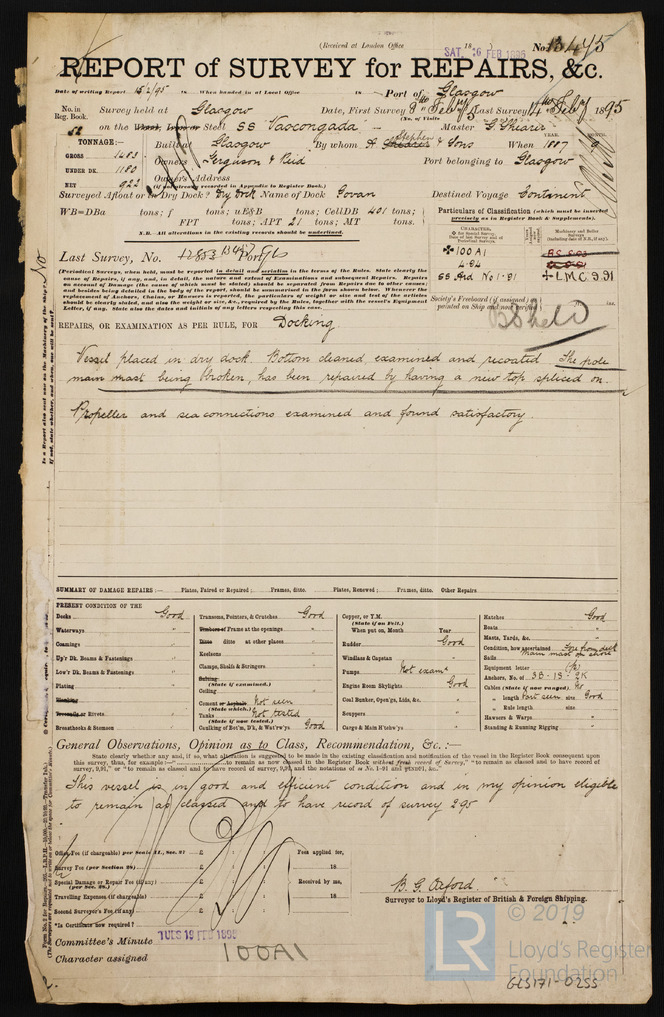 (Received at London Office
SAT. 16 FEB 1895
No. 13445
REPORT of SURVEY for REPAIRS, &c.
Date of writing Report 15/2/95 When handed in at Local Office Port of Glasgow
No. in Reg. Book. Survey held at Glasgow Date, First Survey 9th Feby Last Survey 14th Feby 1895
(No. of Visits
52 on the Wood, Iron or Steel SS "Vascongada" Master G. Shearer
TONNAGE:— Built at Glasgow By whom A Stephen & Sons When 1887 9
GROSS 1483 Owners Ferguson & Reid Port belonging to Glasgow
UNDER DK. 1180 Owners' Address
(if not already recorded in Appendix to Register Book.)
NET 922
Surveyed Afloat or in Dry Dock? Dry Dock Name of Dock Govan Destined Voyage Continent
WB=DBa tons; f tons; uE&B tons; CellDB 401 tons;
FPT tons; APT 21 tons; MT tons.
N.B. All alterations in the existing records should be underlined.
Particulars of Classification (which must be inserted precisely as in Register Book & Supplements).
✠ 100A1
4.94
SS Grd No 1-91
✠ L.M.C 9.91
Last Survey, No. 12853 13427 Port Gls
Society's Freeboard (if assigned) as painted on Ship and now verified ins.
B Sheld
REPAIRS, OR EXAMINATION AS PER RULE, FOR Docking
Vessel placed in dry dock Bottom cleaned examined and recoated The pole
main mast being broken, has been repaired by having a new top spliced on.
Propeller and sea connections examined and found satisfactory
SUMMARY OF DAMAGE REPAIRS:— Plates, Paired or Repaired; Frames, ditto. Plates, Renewed; Frames, ditto. Other Repairs
PRESENT CONDITION OF THE
Decks Good
Waterways "
Coamings "
Up'r Dk. Beams & Fastenings "
Low'r Dk. Beams & Fastenings "
Plating "
Planking
Treenails or Rivets "
Breasthooks & Stemson "
Transoms, Pointers, & Crutches Good
Timbers or Frame at the openings "
Ditto ditto at other places "
Keelsons "
Clamps, Shelfs & Stringers "
Salting
(State if examined.)
Ceiling "
Cement or Asphalt Not seen
(State which.)
Tanks Not tested
(State if now tested.)
Caulking of Bot'm, D'k, & Wat'rw'ys Good
Copper, or Y.M.
(State if on Felt.)
When put on, Month Year
Rudder Good
Windlass & Capstan "
Pumps Not examd
Engine Room Skylights Good
Coal Bunker, Open'gs, Lids, &c. "
Scuppers "
Cargo & Main Hatchw'ys "
Hatches Good
Boats "
Masts, Yards, &c. "
Condition, how ascertained Fore from deck
Main mast on shore
Sails
Equipment letter
Anchors, No. of 3B-1S-2K
Cables (State if now ranged) No
" length Part seen size Good
" Rule length size
Hawsers & Warps "
Standing & Running Rigging "
General Observations, Opinion as to Class, Recommendation, &c.:—
This vessel is in good and efficient condition and in my opinion eligible
to remain as classed and to have record of survey 2.95
Office Fee (if chargeable) per Scale II., Sec. 27 £
Survey Fee (per Section 28) £
Special Damage or Repair Fee (if any) £
(per Sec. 28.)
Travelling Expenses (if chargeable) £
Second Surveyor's Fee (if any) £
Fees applied for, 18
Received by me, 18
*Is Certificate now required?
B. G. Oxford.
Surveyor to Lloyd's Register of British & Foreign Shipping.
Committee's Minute TUES 19 FEB 1895
Character assigned 100A1
© 2019
LR
Lloyd's Register
Foundation
GLS171-0255